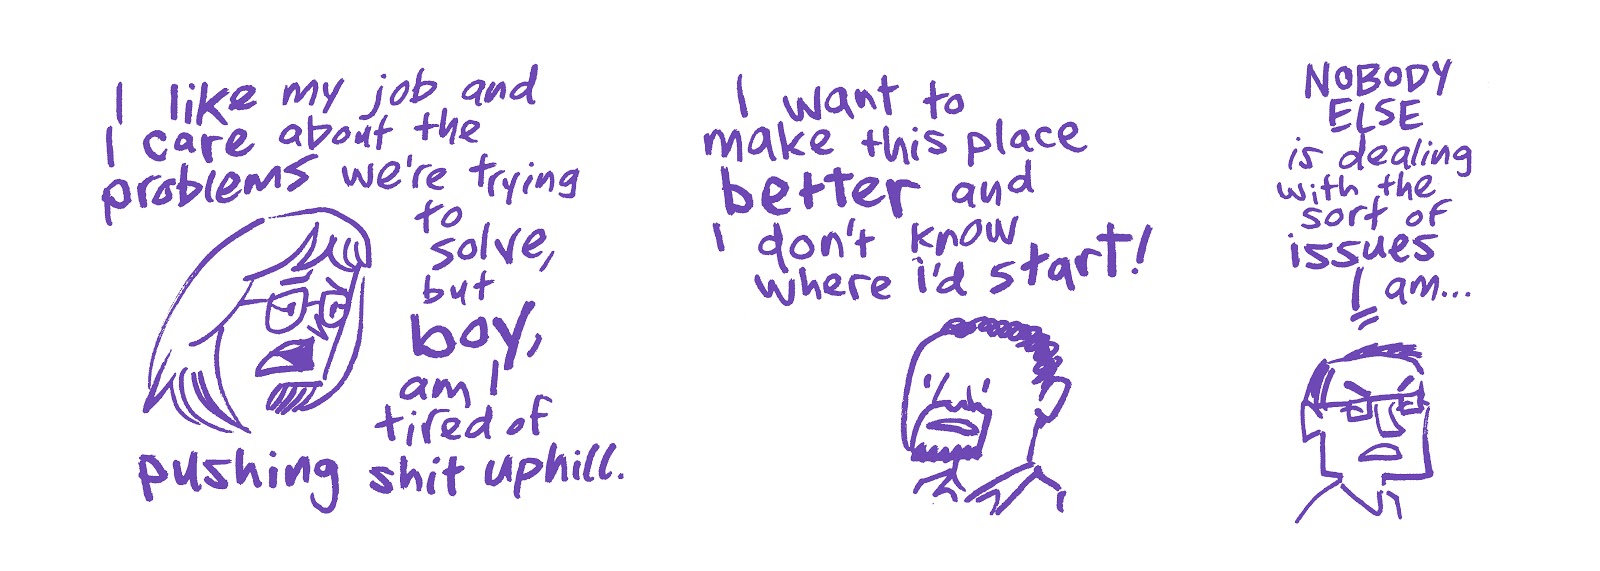 I like my job and
I care about the
problems we're trying
to
solve,
but
boy,
am I
tired of
pushing shit uphill.
I want to
make this place
better and
I don't know
where i'd start!
NOBODY
ELSE
is dealing
with the
sort of
issues
I am...